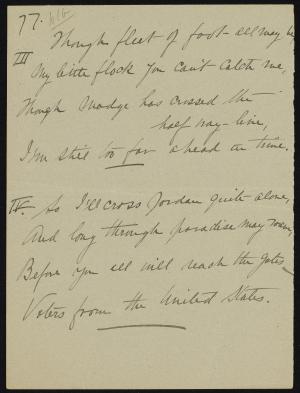 77.
III Though fleet of foot - all may be
My little flock you can't catch me,
Though Madge has crossed the
half way - line,
I'm still too far ahead in time.
IV. So I'll cross Jordan quite alone,
And long through paradise may roam,
Before you all will reach the gates
Voters from the United States.